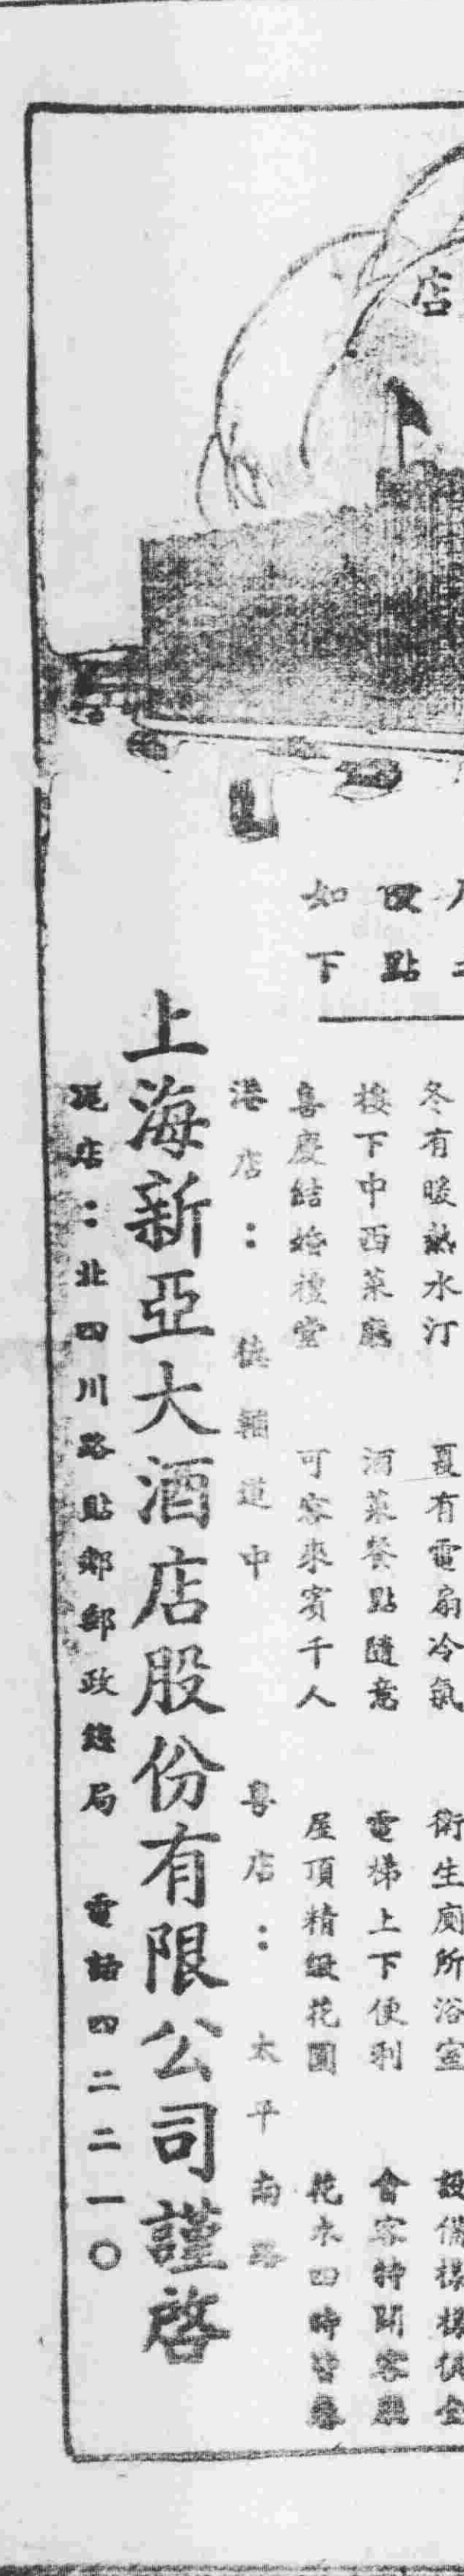 店
改點
如下
冬有暖熱水汀 夏有電扇冷氣 衛生廁所浴室 設備樣樣俱全
接下中西菜廳 酒菜餐點隨意 電梯上下便利 會客特闢客廳
喜慶結婚禮堂 可容來賓千人 屋頂精緻花園 花木四時皆春
港店：德輔道中 粵店：太平南路
上海新亞大酒店股份有限公司謹啓
滬店：北四川路貼鄰郵政總局 電話四二二一〇